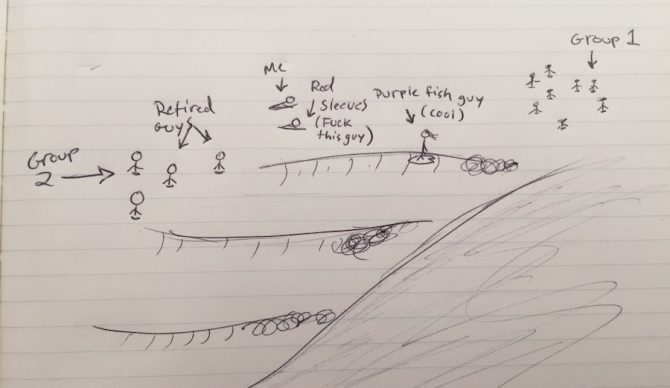 Group 1
Me
Red
Sleeves
(Fuck
this guy)
Purple fish guy
(cool)
Retired
guys
Group
2